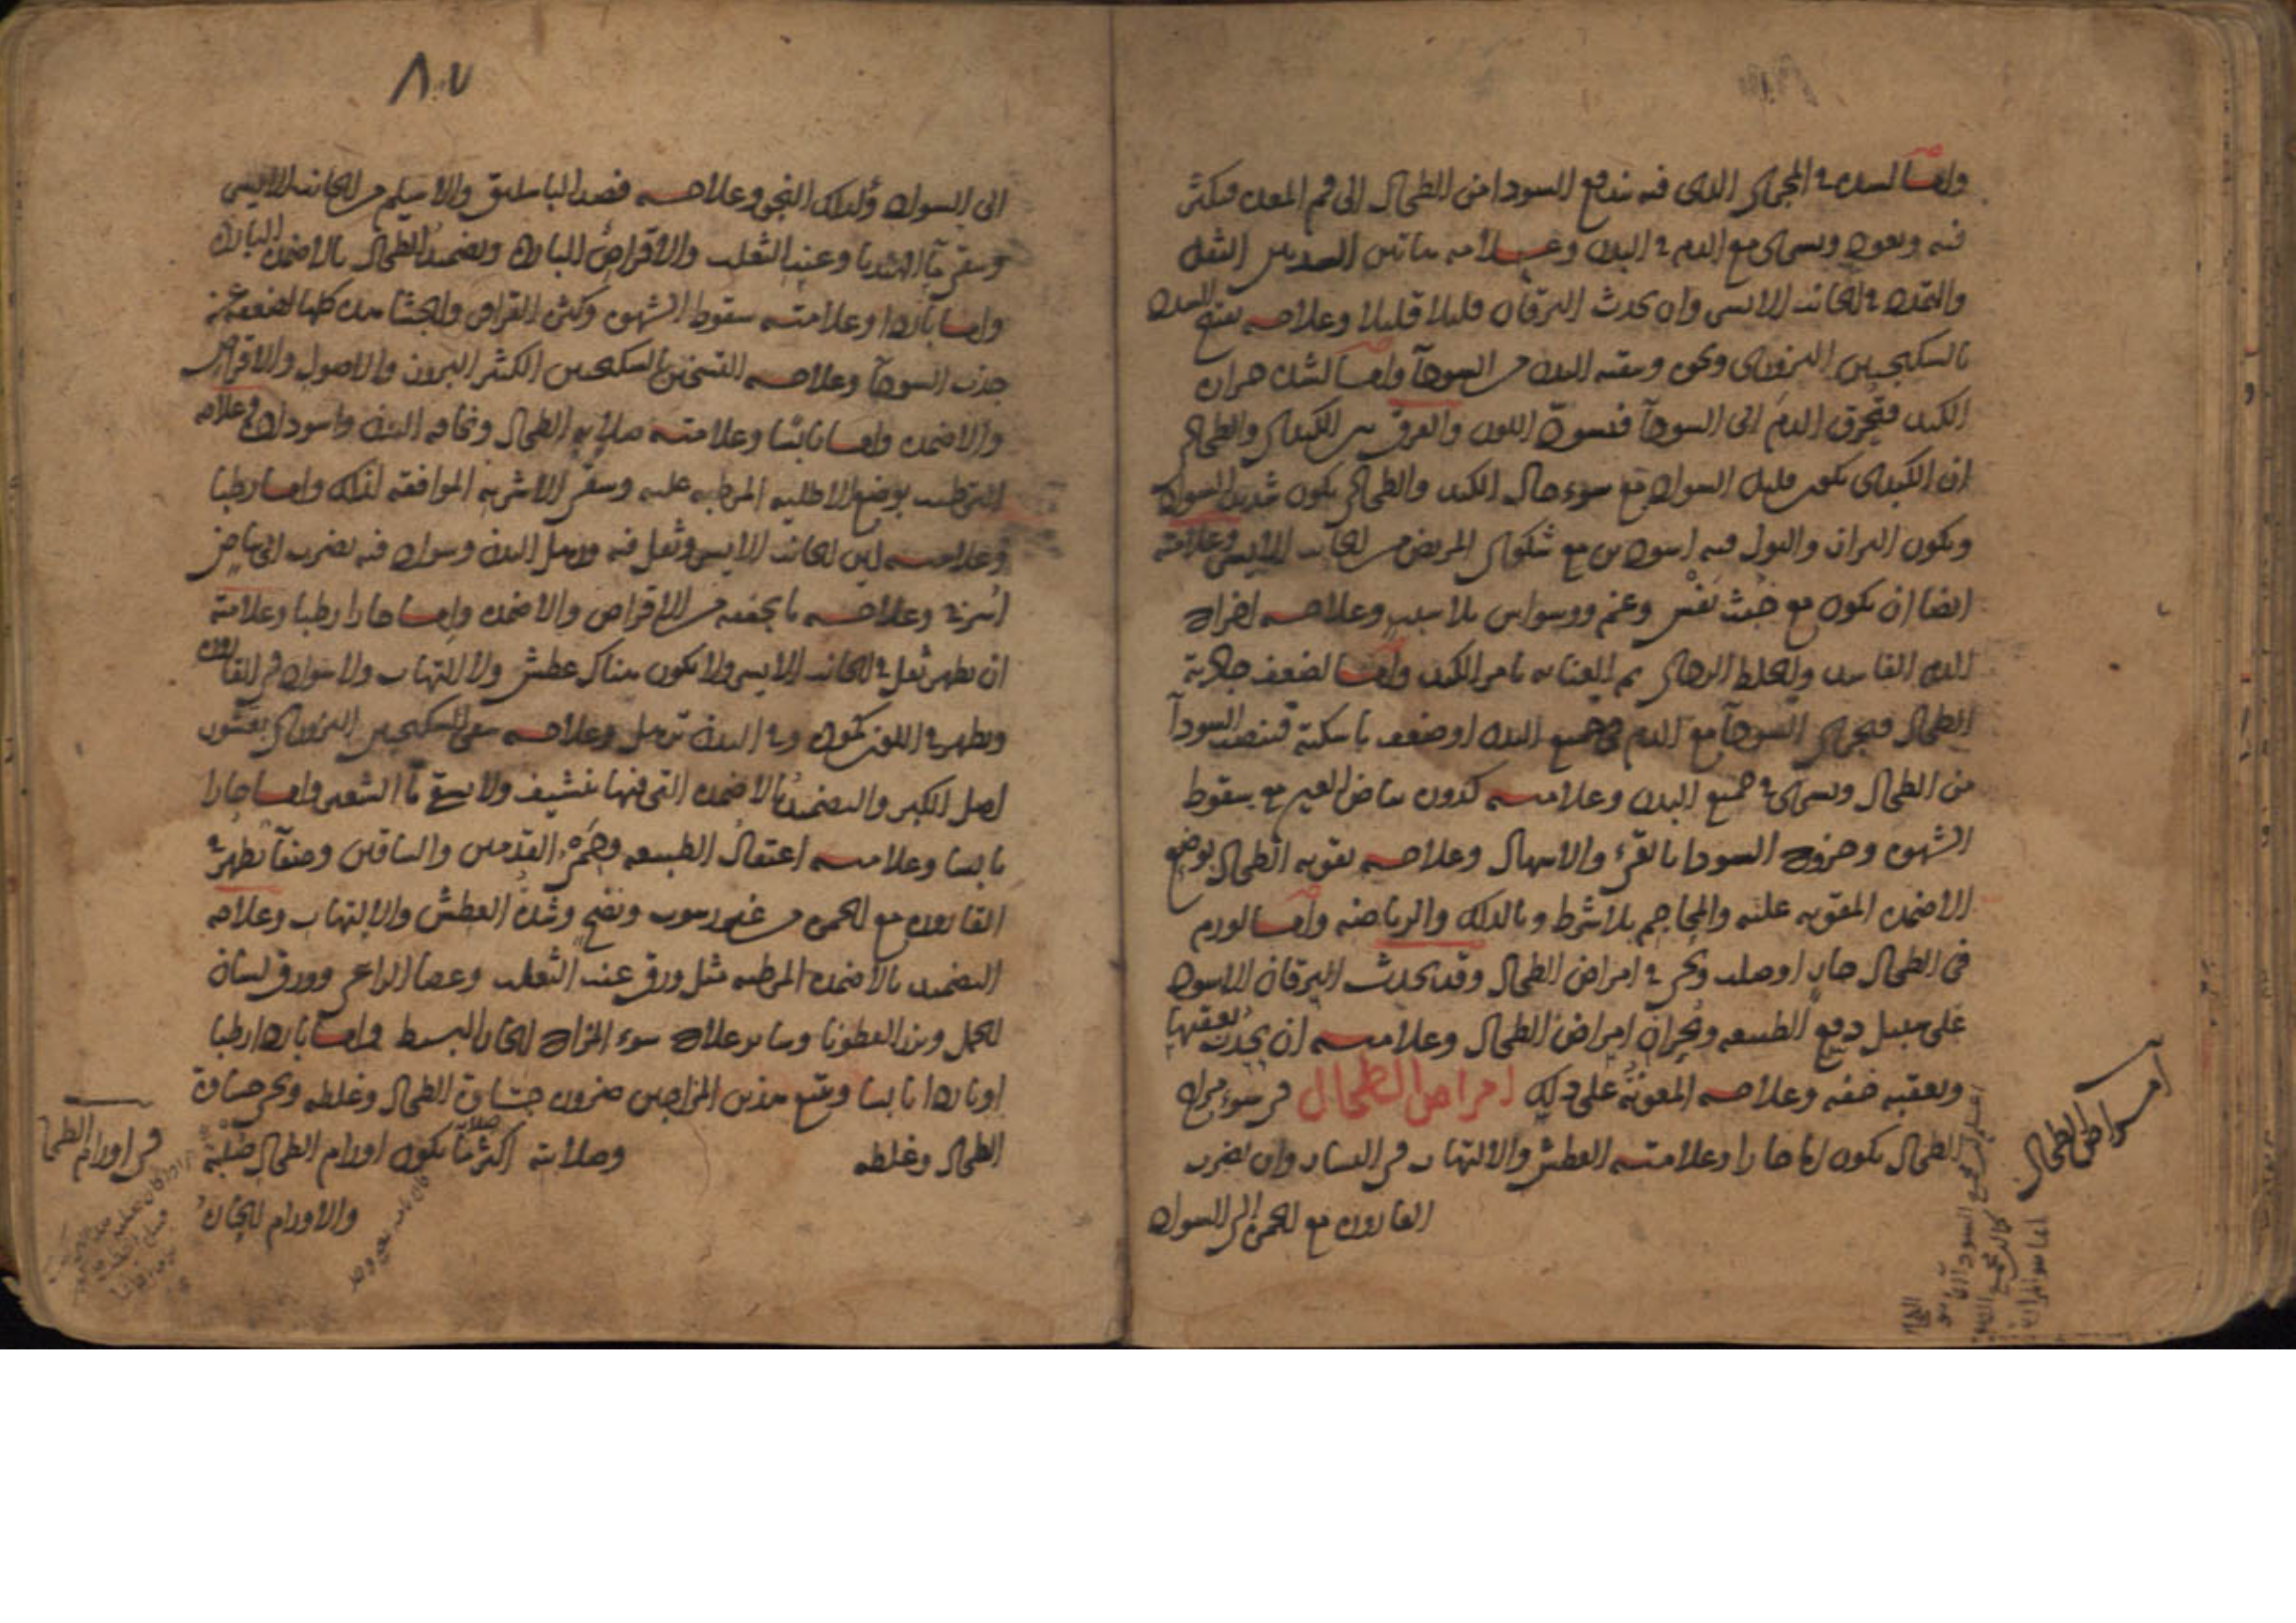 واما لسده في المجرى الذى فيه يندفع السودا من الطحال الى فم المعده فيكثر
فيه ويعود ويسرى مع الدم في البدن وعلامته الثقل
والتمدد في الجانب الايسر وان يحدث اليرقان قليلا قليلا وعلاجه تفتيح السدد
بالسكنجبين البزورى ونحوه وتنقيه البدن من السودآ واما لشده حراره
الكبد فيحرق الدم الى السودآ فيسود اللون والفرق بين الكبدى والطحالى
ان الكبدى يكون قليل السواد مع سوء حال الكبد والطحالى يكون شديد السواد
ويكون البراز والبول فيه اسودين مع شكوى المريض من الجانب الايسر وعلامته
ايضا ان يكون مع خبث نفس وغم ووسواس بلا سبب وعلاجه اخراج
الدم الفاسد والخلط الردى ثم العنايه بامر الكبد واما لضعف جاذبة
الطحال فيجرى السودآ مع الدم في جميع البدن او ضعف ماسكته فينصب السودآ
من الطحال ويسرى في جميع البدن وعلامته كدورة بياض العين مع سقوط
الشهوه وخروج السودا بالقئ والاسهال وعلاجه تقويه الطحال بوضع
الاضمده المقويه عليه والمحاجم بلا شرط وبالدلك والرياضه واما لورم
فى الطحال حار او صلب ويجئ في امراض الطحال وقد يحدث اليرقان الاسود
على سبيل دفع الطبيعه وبحران امراض الطحال وعلامته ان يحدث بعقبها
ويعقبه خفه وعلاجه المعونة على ذلك امراض الطحال في سوء مزاج
الطحال يكون اما حارا وعلامته العطش والالتهاب فى اليسار وان يضرب
القاروره مع الحمره الى السواد
امراض الطحال
٨٠٧
الى السواد وكذلك النجو وعلاجه فصد الباسليق والاسيلم من الجانب الايسر
وسقى مآ الهندبا وعنب الثعلب والاقراص البارده وتضميد الطحال بالاضمده البارده
واما باردا وعلامته سقوط الشهوه وكثره القراقر والجشا هذه كلها لضعفه عن
جذب السودآ وعلاجه التسخين بالسكنجبين الكثير البزور والاصول والاقراص
والاضمده واما يابسا وعلامته صلابه الطحال ونحافه البدن واسوداده وعلاجه
الترطيب بوضع الاطليه المرطبه عليه وسقى الاشربه الموافقه لذلك واما رطبا
وعلامته لين الجانب الايسر وثقل فيه وترهل البدن وسواد فيه يضرب الى بياض
اسربى وعلاجه ما يجففه من الاقراص والاضمده واما حارا رطبا وعلامته
ان يظهر ثقل في الجانب الايسر ولا يكون هناك عطش ولا التهاب ولا سواد فى القاروره
ويظهر في اللون كموده وفي البدن ترهل وعلاجه سقى السكنجبين البزورى بقشور
اصل الكبر والتضميد بالاضمده التى فيها تنشيف ولا يسقى مآ الشعير واما حارا
يابسا وعلامته اعتقال الطبيعه وحمرة القدمين والساقين وصفآ يظهر في
القاروره مع الحمره من غير رسوب ونضج وشدة العطش والالتهاب وعلاجه
التضميد بالاضمده المرطبه مثل ورق عنب الثعلب وعصا الراعى وورق لسان
الحمل وبزر القطونا وساير علاج سوء المزاج الحار البسيط واما باردا رطبا
او باردا يابسا ويتبع هذين المزاجين ضرورة جساوة الطحال وغلظه ويجئ جساوة
الطحال وغلظه وصلابته اكثر ما يكون اورام الطحال صلبة
والاورام الحاره
فى اورام الطحال